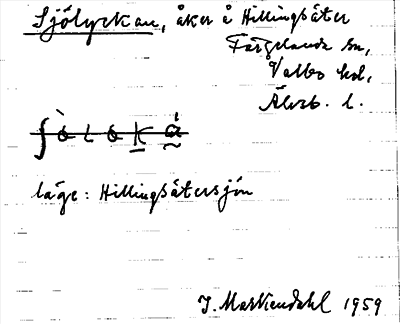 Sjölyckan, åker å Hillingsäter
Färgelanda sn,
Valbo hd,
Älvsb. l.
läge: Hillingsätersjön
J. Markendahl 1959